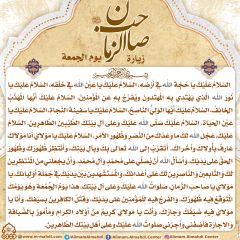 صاحب الزمان
زيارة
يوم الجمعة
السَّلامُ عَلَيْكَ يا حُجَّةَ اللهِ في أرضِهِ، السَّلامُ عَلَيْكَ يا عَيْنَ اللهِ في خَلْقِهِ، السَّلامُ عَلَيْكَ يا
نُورَ اللهِ الَّذي يَهْتَدي بِهِ المُهْتَدونَ ويُفَرَّجُ بِهِ عَنِ المُؤْمِنينَ، السَّلامُ عَلَيْكَ أيُّها المُهَذَّبُ
الخائِفُ، السَّلامُ عَلَيْكَ أيُّها الوَلِيُّ النّاصِحُ، السَّلامُ عَلَيْكَ يا سَفينَةَ النَّجاةِ، السَّلامُ عَلَيْكَ يا
عَيْنَ الحَياةِ، السَّلامُ عَلَيْكَ صَلَّى اللهُ عَلَيْكَ وعَلى آلِ بَيْتِكَ الطَّيِّبينَ الطّاهِرينَ، السَّلامُ
عَلَيْكَ، عَجَّلَ اللهُ لَكَ ما وَعَدَكَ مِنَ النَّصْرِ وظُهورِ الأمْرِ، السَّلامُ عَلَيْكَ يا مَوْلايَ أنا مَوْلاكَ
عارِفٌ بِأُولاكَ وأُخْراكَ، أتَقَرَّبُ إلى اللهِ تَعالى بِكَ وبِآلِ بَيْتِكَ، وأنْتَظِرُ ظُهورَكَ وظُهورَ
الحَقِّ عَلى يَدَيْكَ، وأسْألُ اللهَ أنْ يُصَلِّيَ عَلى مُحَمَّدٍ وآلِ مُحَمَّدٍ، وأنْ يَجْعَلَني مِنَ المُنْتَظِرينَ
لَكَ والتّابِعينَ والنّاصِرينَ لَكَ عَلى أعْدائِكَ، والمُسْتَشْهَدينَ بَيْنَ يَدَيْكَ في جُمْلَةِ أوْلِيائِكَ. يا
مَوْلايَ يا صاحِبَ الزَّمانِ، صَلَواتُ اللهِ عَلَيْكَ وعَلى آلِ بَيْتِكَ، هذا يَوْمُ الجُمُعَةِ وهُوَ يَوْمُكَ
المُتَوَقَّعُ فيهِ ظُهورُكَ، والفَرَجُ فيهِ لِلمُؤْمِنينَ عَلى يَدَيْكَ، وقَتْلُ الكافِرينَ بِسَيْفِكَ، وأنا يا
مَوْلايَ فيهِ ضَيْفُكَ وجارُكَ، وأنْتَ يا مَوْلايَ كَريمٌ مِنْ أوْلادِ الكِرامِ ومَأمورٌ بِالضِّيافَةِ
والإجارَةِ فَأضِفْني وأجِرْني صَلَواتُ اللهِ عَلَيْكَ وعَلى أهْلِ بَيْتِكَ الطّاهِرينَ.